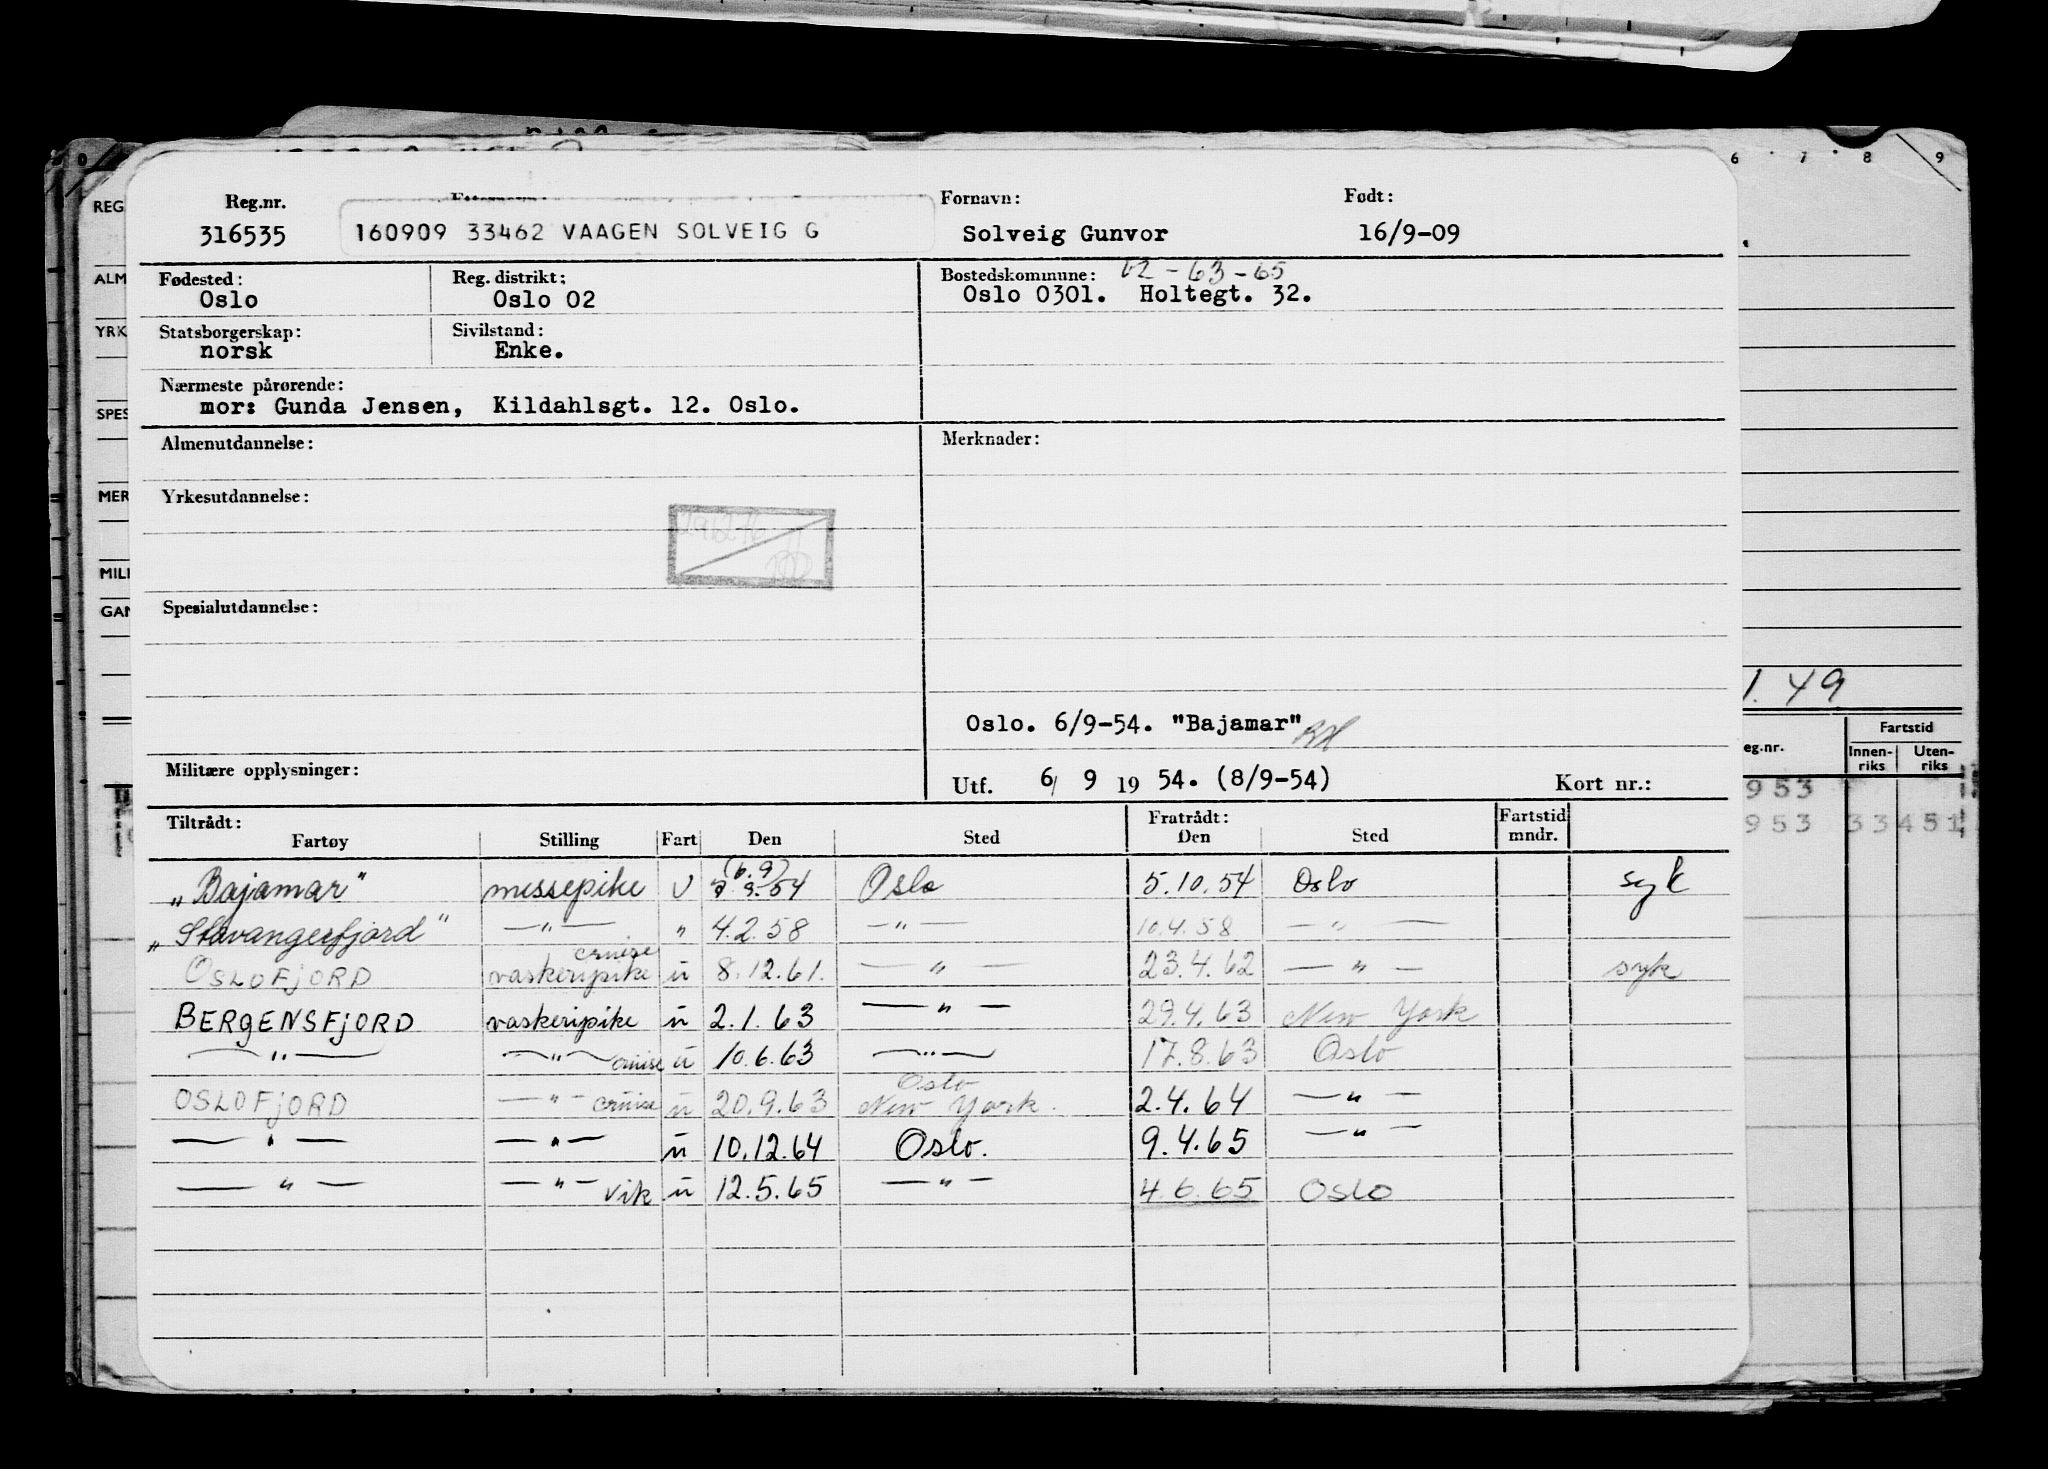 6 7 8 9
REG Reg.nr. Fornavn: Født:
316535 160909 33462 VAAGEN SOLVEIG G Solveig Gunvor 16/9-09
ALM Fødested: Reg. distrikt: Bostedskommune: 62-63-65
Oslo Oslo 02 Oslo 0301. Holtegt. 32.
YRK Statsborgerskap: Sivilstand:
norsk Enke.
Nærmeste pårørende:
SPES mor: Gunda Jensen, Kildahlsgt. 12. Oslo.
Almenutdannelse: Merknader:
MER Yrkesutdannelse:
MILI
GAN Spesialutdannelse:
1. 49
Oslo. 6/9-54. "Bajamar"
eg.nr. Fartstid
Innen- Uten-
riks riks
Militære opplysninger: Utf. 6/ 9 19 54. (8/9-54) Kort nr.:
953
953 33451
Tiltrådt: Fratrådt: Fartstid
Fartøy Stilling Fart Den Sted Den Sted mndr.
(6.9)
„Bajamar" messepike U 9.54 Oslo 5.10.54 Oslo syk
„Stavangerfjord" —"— " 4.2.58 —"— 10.4.58 —"—
cruise
OSLOFJORD vaskeripike u 8.12.61. —"— 23.4.62 —"— syk
BERGENSFJORD vaskeripike u 2.1.63 —"— 29.4.63 New York
—"— —"— cruise u 10.6.63 —"— 17.8.63 Oslo
Oslo
OSLOFJORD —"— cruise u 20.9.63 New York. 2.4.64 —"—
—"— —"— u 10.12.64 Oslo. 9.4.65 —"—
—"— —"— vik u 12.5.65 —"— 4.6.65 Oslo